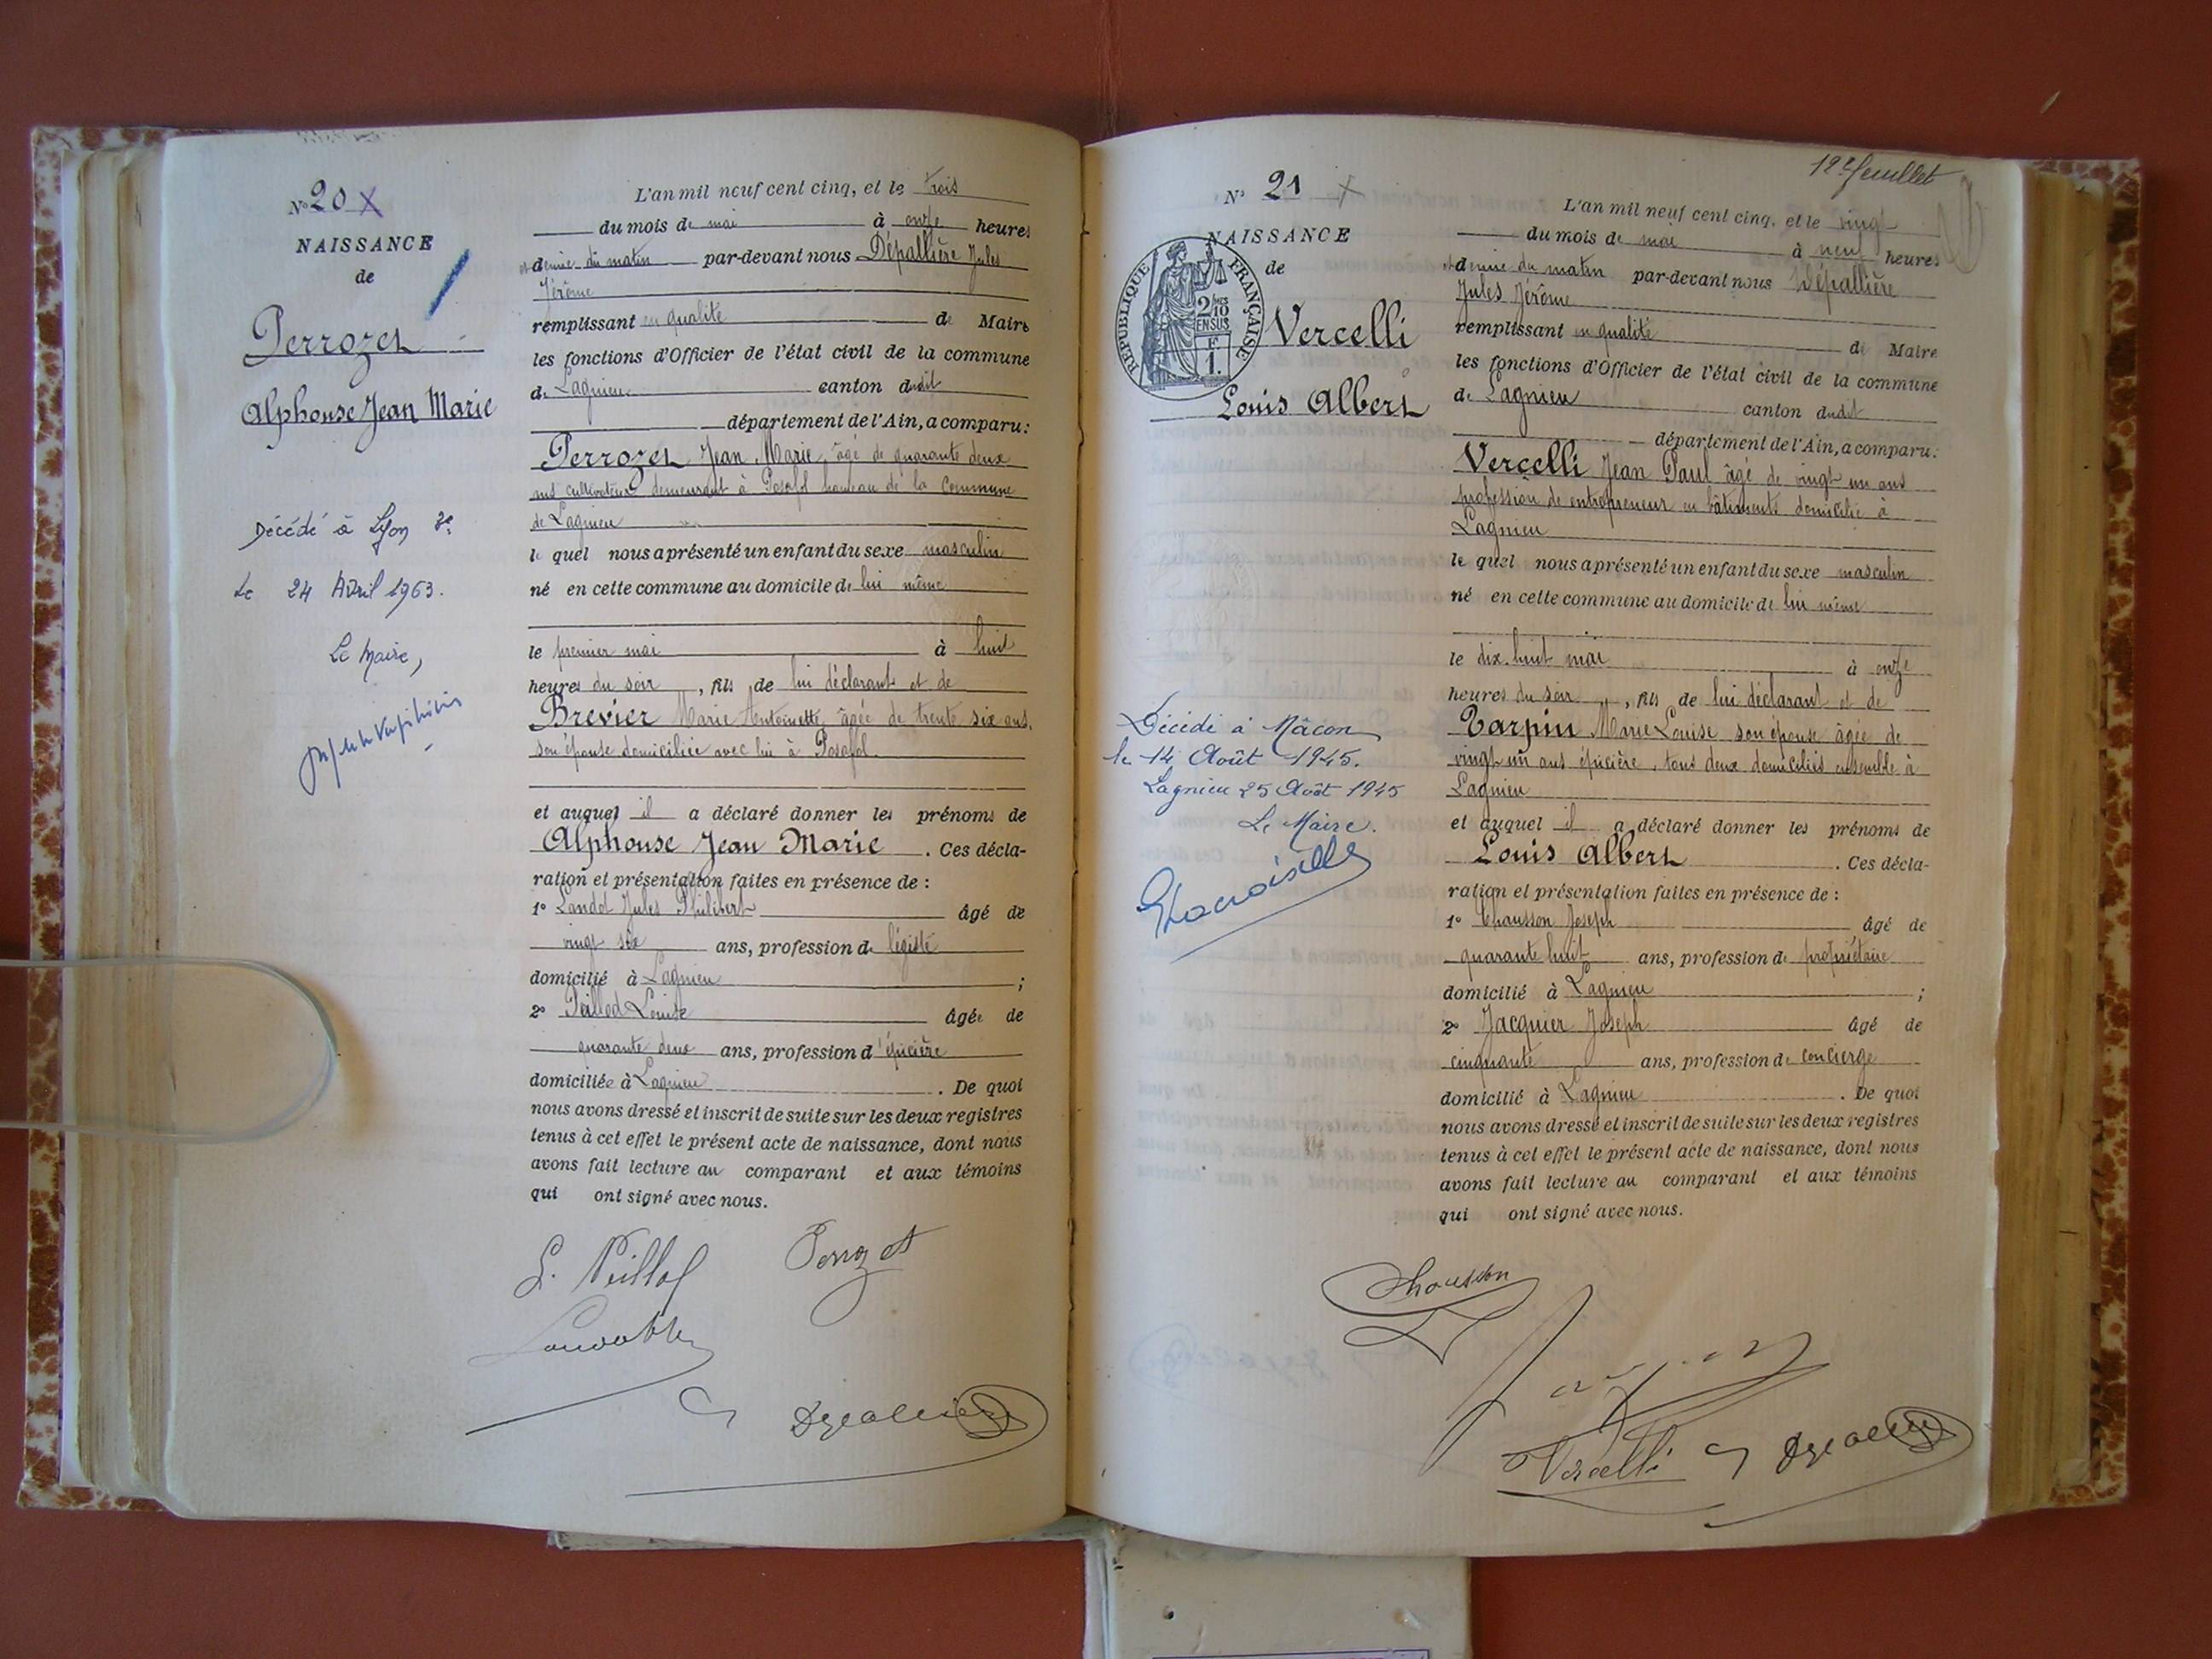 N° 20 X
NAISSANCE
de
Perrozet
Alphonse Jean Marie
Décédé à Lyon 3e
Le 24 Avril 1963.
Le Maire,
L'an mil neuf cent cinq, et le trois
du mois de mai à onze heures
et demie du matin par-devant nous Dépallière Jules
Jérôme
remplissant en qualité de Maire
les fonctions d'Officier de l'état civil de la commune
de Lagnieu canton dudit
département de l'Ain, a comparu:
Perrozet Jean Marie, âgé de quarante deux
ans cultivateur demeurant à Posafol hameau de la Commune
de Lagnieu
le quel nous a présenté un enfant du sexe masculin
né en cette commune au domicile de lui même
le premier mai à huit
heures du soir, fils de lui déclarant et de
Brevier Marie Antoinette, âgée de trente six ans,
son épouse domiciliée avec lui à Posafol
et auquel il a déclaré donner les prénoms de
Alphonse Jean Marie. Ces décla-
ration et présentation faites en présence de :
1° Landot Jules Philibert âgé de
vingt six ans, profession de légiste
domicilié à Lagnieu ;
2° Peillod Louise âgée de
quarante deux ans, profession d'épicière
domiciliée à Lagnieu. De quoi
nous avons dressé et inscrit de suite sur les deux registres
tenus à cet effet le présent acte de naissance, dont nous
avons fait lecture au comparant et aux témoins
qui ont signé avec nous.
L. Peillod Perrozet
12e feuillet
N° 21 X
NAISSANCE
de
RÉPUBLIQUE FRANÇAISE
2/10
EN SUS
F
1.
Vercelli
Louis Albert
Décédé à Mâcon
le 14 Août 1945.
Lagnieu 25 Août 1945
Le Maire.
L'an mil neuf cent cinq, et le vingt
du mois de mai à neuf heures
et demie du matin par-devant nous Dépallière
Jules Jérôme
remplissant en qualité de Maire
les fonctions d'Officier de l'état civil de la commune
de Lagnieu canton dudit
département de l'Ain, a comparu:
Vercelli Jean Paul âgé de vingt un ans
profession de entrepreneur en bâtiments domicilié à
Lagnieu
le quel nous a présenté un enfant du sexe masculin
né en cette commune au domicile de lui même
le dix-huit mai à onze
heures du soir, fils de lui déclarant et de
Tarpin Marie Louise son épouse âgée de
vingt un ans épicière, tous deux domiciliés ensemble à
Lagnieu
et auquel il a déclaré donner les prénoms de
Louis Albert. Ces décla-
ration et présentation faites en présence de :
1° Chausson Joseph âgé de
quarante huit ans, profession de propriétaire
domicilié à Lagnieu ;
2° Jacquier Joseph âgé de
cinquante ans, profession de concierge
domicilié à Lagnieu. De quoi
nous avons dressé et inscrit de suite sur les deux registres
tenus à cet effet le présent acte de naissance, dont nous
avons fait lecture au comparant et aux témoins
qui ont signé avec nous.
Chausson
Vercelli